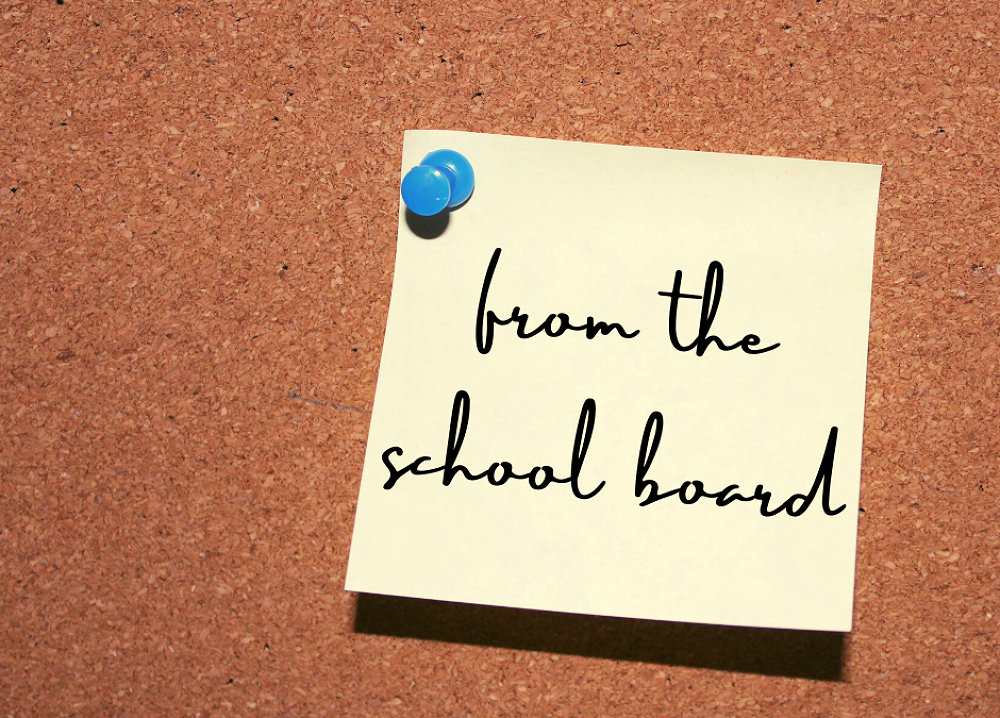 from the
school board